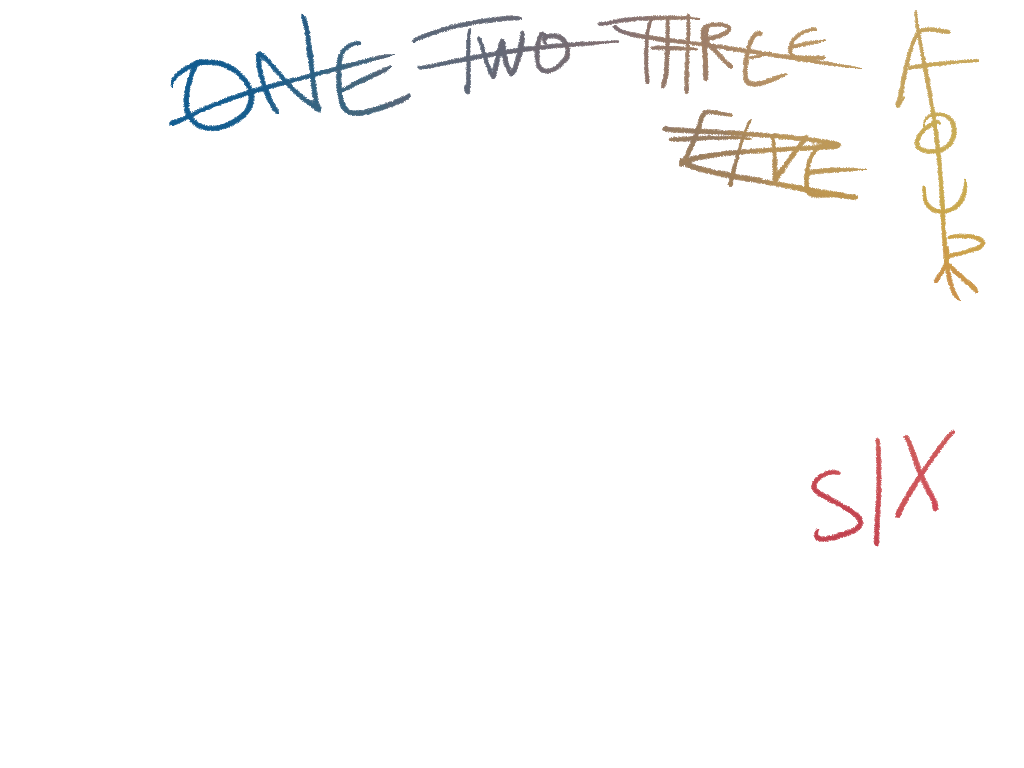 ONE TWO THREE
FOUR
FIVE
SIX